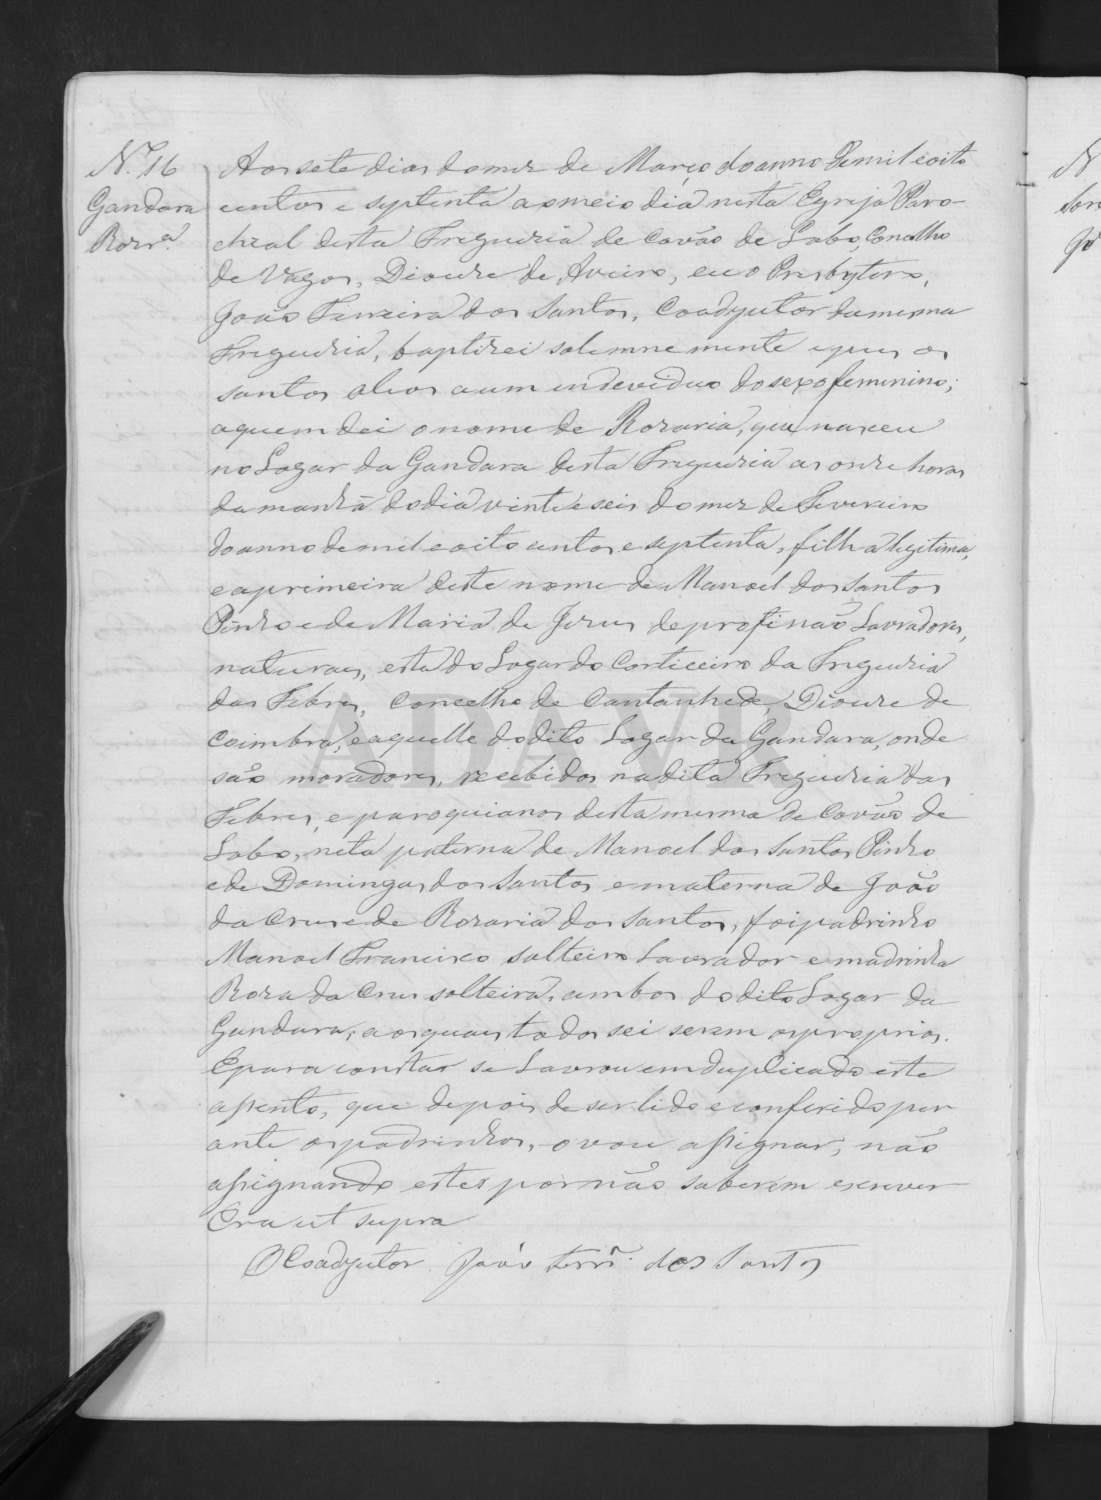 Nº 16
Gandara
Rozrª
Aos sete dias do mez de Março do anno de mil e oito
centos e septenta ao meio dia nesta Egreja Paro-
chial desta Freguezia de Covão de Lobo, Concelho
de Vagos, Diocese de Aveiro, eu o Presbytero,
João Ferreira dos Santos, Coadjutor da mesma
Freguezia, baptizei solemnemente e puz os
santos oleos a um endeviduo do sexo femenino;
a quem dei o nome de Rozaria, que nasceu
no Logar da Gandara desta Freguezia as onze horas
da manhã do dia vinte e seis do mez de Fevereiro
do anno de mil e oito centos e septenta, filha legitima,
e a primeira deste nome de Manoel dos Santos
Pinho e de Maria de Jezus de profissão Lavradores,
naturaes, esta do Logar do Corticeiro da Freguezia
das Febres, Concelho de Cantanhede, Diocese de
Coimbra, e aquelle do dito Logar da Gandara, onde
são moradores, recebidos na dita Freguezia das
Febres, e paroquianos desta mesma de Covão de
Lobo, neta paterna de Manoel dos Santos Pinho
e de Domingas dos Santos e materna de João
da Cruz e de Rozaria dos Santos, foi padrinho
Manoel Francisco solteiro Lavrador e madrinha
Roza da Cruz solteira, ambos do dito Logar da
Gandara; aos quaes todos sei serem os proprios.
E para constar se Lavrou em duplicado este
assento, que depois de ser lido e conferido per
ante os padrinhos, o vou assignar, não
assignando estes por não saberem escrever
Era ut supra
O Coadjutor João Ferrª dos Santos
ADAVR